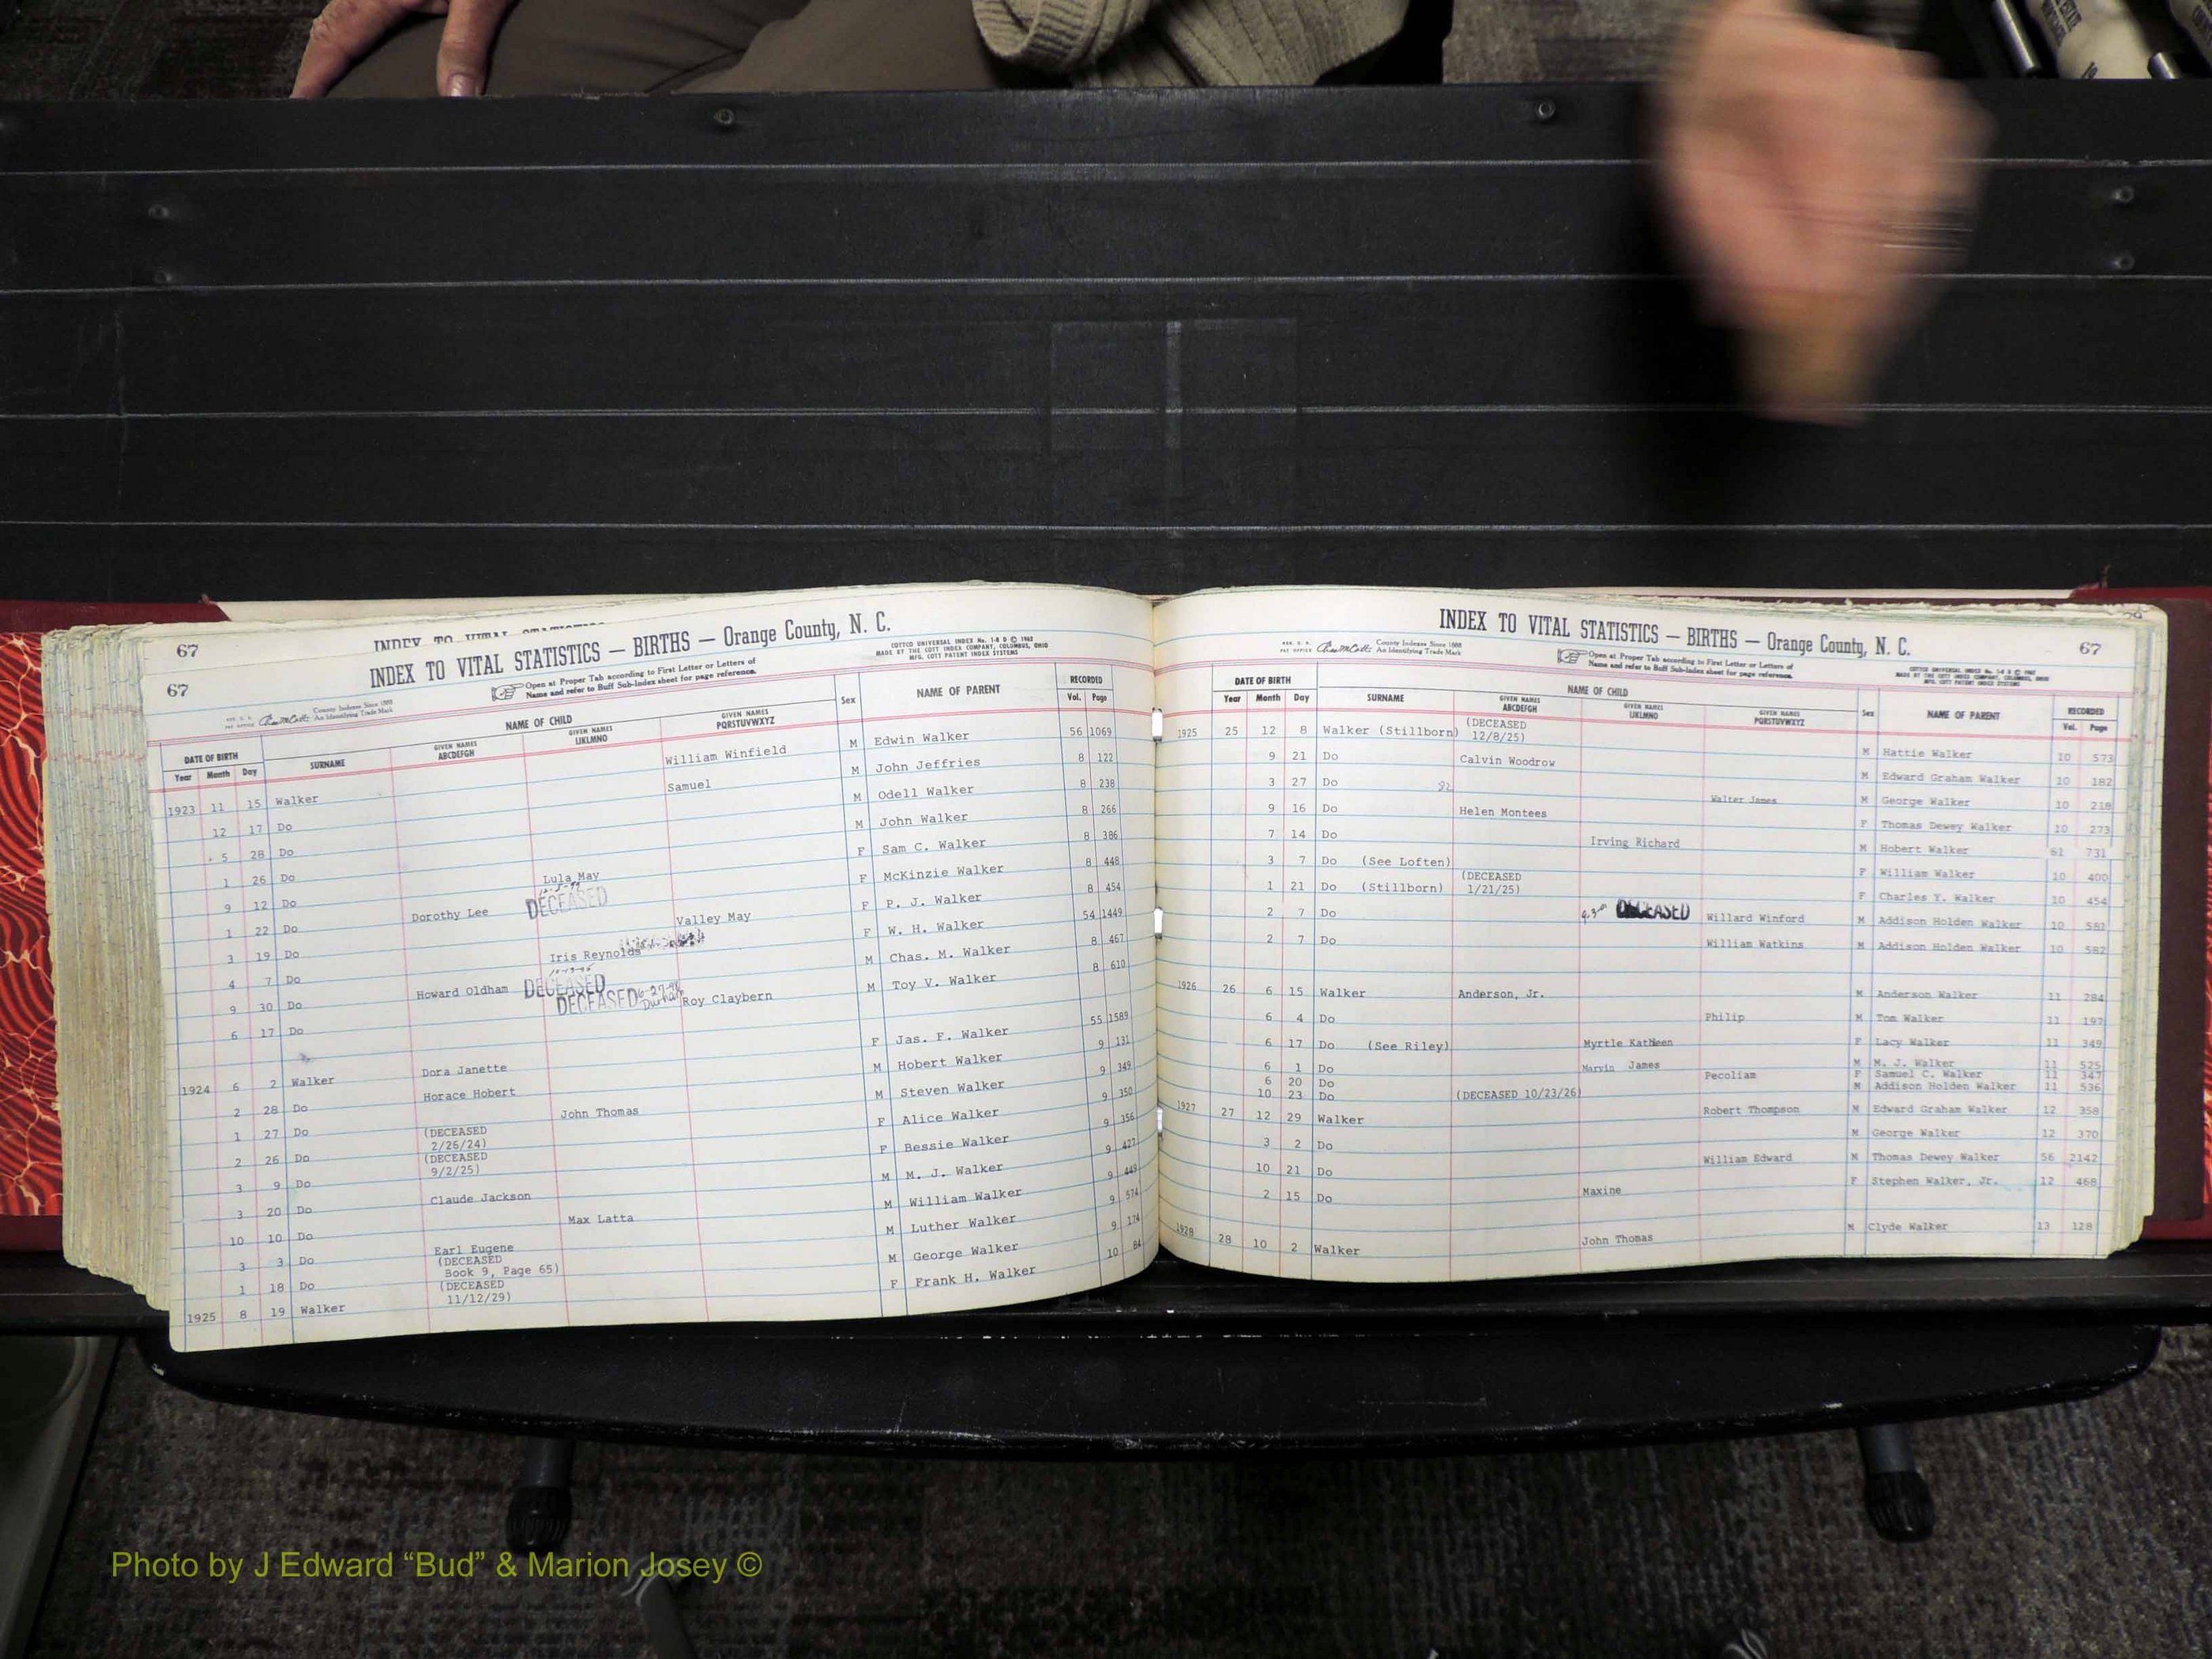 67
67
INDEX TO VITAL STATISTICS — BIRTHS — Orange County, N. C.
COTTCO UNIVERSAL INDEX No. 1-8 D © 1962
MADE BY THE COTT INDEX COMPANY, COLUMBUS, OHIO
MFG. COTT PATENT INDEX SYSTEMS
Open at Proper Tab according to First Letter or Letters of
Name and refer to Buff Sub-Index sheet for page reference.
County Indexes Since 1888
An Identifying Trade Mark
DATE OF BIRTH NAME OF CHILD Sex NAME OF PARENT RECORDED
Year Month Day SURNAME GIVEN NAMES ABCDEFGH GIVEN NAMES IJKLMNO GIVEN NAMES PQRSTUVWXYZ Vol. Page
1923 11 15 Walker William Winfield M Edwin Walker 56 1069
12 17 Do Samuel M John Jeffries 8 122
5 28 Do M Odell Walker 8 238
1 26 Do M John Walker 8 266
9 12 Do Lula May F Sam C. Walker 8 386
1 22 Do Dorothy Lee DECEASED F McKinzie Walker 8 448
3 19 Do Valley May F P. J. Walker 8 454
4 7 Do Iris Reynolds F W. H. Walker 54 1449
9 30 Do Howard Oldham DECEASED M Chas. M. Walker 8 467
6 17 Do DECEASED Durham Roy Claybern M Toy V. Walker 8 610
1924 6 2 Walker Dora Janette F Jas. F. Walker 55 1589
2 28 Do Horace Hobert M Hobert Walker 9 131
1 27 Do John Thomas M Steven Walker 9 349
2 26 Do (DECEASED 2/26/24) F Alice Walker 9 350
3 9 Do (DECEASED 9/2/25) F Bessie Walker 9 356
3 20 Do Claude Jackson M M. J. Walker 9 427
10 10 Do Max Latta M William Walker 9 449
3 3 Do Earl Eugene M Luther Walker 9 574
1 18 Do (DECEASED Book 9, Page 65) M George Walker 9 174
1925 8 19 Walker (DECEASED 11/12/29) F Frank H. Walker 10 84
INDEX TO VITAL STATISTICS — BIRTHS — Orange County, N. C.
67
County Indexes Since 1888
An Identifying Trade Mark
Open at Proper Tab according to First Letter or Letters of
Name and refer to Buff Sub-Index sheet for page reference.
COTTCO UNIVERSAL INDEX No. 1-8 D © 1962
MADE BY THE COTT INDEX COMPANY, COLUMBUS, OHIO
MFG. COTT PATENT INDEX SYSTEMS
DATE OF BIRTH NAME OF CHILD Sex NAME OF PARENT RECORDED
Year Month Day SURNAME GIVEN NAMES ABCDEFGH GIVEN NAMES IJKLMNO GIVEN NAMES PQRSTUVWXYZ Vol. Page
1925 25 12 8 Walker (Stillborn) (DECEASED 12/8/25) M Hattie Walker 10 573
9 21 Do Calvin Woodrow M Edward Graham Walker 10 182
3 27 Do Walter James M George Walker 10 218
9 16 Do Helen Montees F Thomas Dewey Walker 10 273
7 14 Do Irving Richard M Hobert Walker 61 731
3 7 Do (See Loften) F William Walker 10 400
1 21 Do (Stillborn) (DECEASED 1/21/25) F Charles Y. Walker 10 454
2 7 Do DECEASED Willard Winford M Addison Holden Walker 10 581
2 7 Do William Watkins M Addison Holden Walker 10 582
1926 26 6 15 Walker Anderson, Jr. M Anderson Walker 11 284
6 4 Do Philip M Tom Walker 11 197
6 17 Do (See Riley) Myrtle Kathleen F Lacy Walker 11 349
6 1 Do Marvin James M M. J. Walker 11 525
6 20 Do Pecoliam F Samuel C. Walker 11 347
10 23 Do (DECEASED 10/23/26) M Addison Holden Walker 11 536
1927 27 12 29 Walker Robert Thompson M Edward Graham Walker 12 358
3 2 Do M George Walker 12 370
10 21 Do William Edward M Thomas Dewey Walker 56 2142
2 15 Do Maxine F Stephen Walker, Jr. 12 468
1928 28 10 2 Walker John Thomas M Clyde Walker 13 128
Photo by J Edward “Bud” & Marion Josey ©